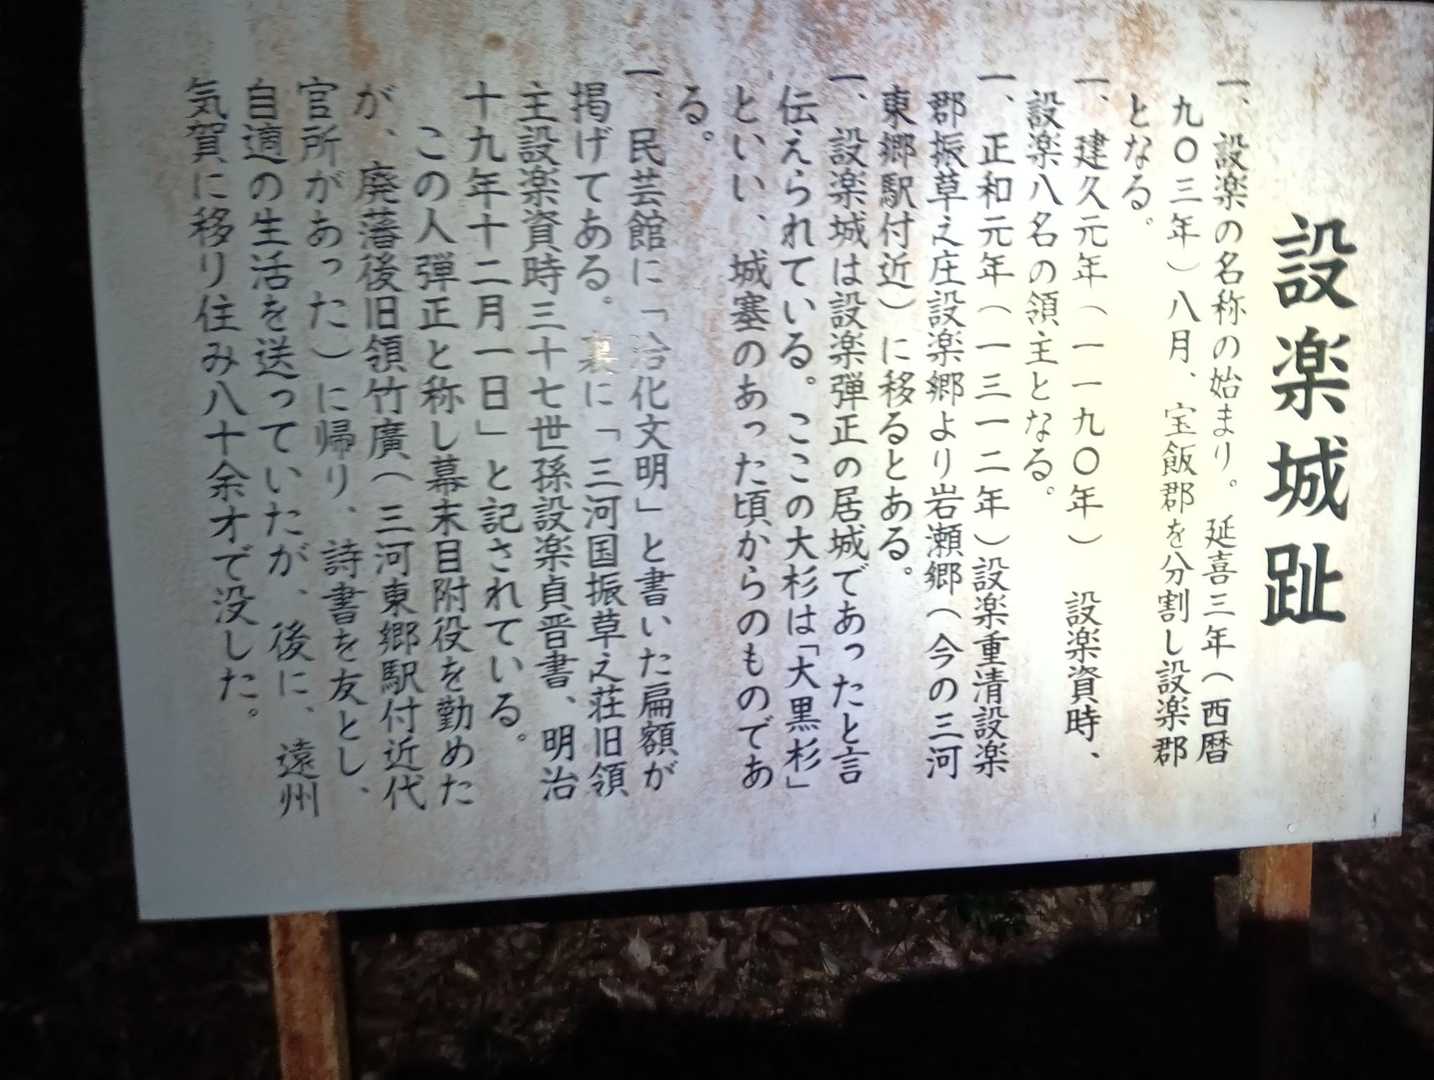 設楽城趾
一、設楽の名称の始まり。延喜三年(西暦
九〇三年)八月、宝飯郡を分割し設楽郡
となる。
一、建久元年(一一九〇年) 設楽資時、
設楽八名の領主となる。
一、正和元年(一三一二年)設楽重清設楽
郡振草之庄設楽郷より岩瀬郷(今の三河
東郷駅付近)に移るとある。
一、設楽城は設楽弾正の居城であったと言
伝えられている。ここの大杉は「大黒杉」
といい、城塞のあった頃からのものであ
る。
一、民芸館に「治化文明」と書いた扁額が
掲げてある。裏に「三河国振草之荘旧領
主設楽資時三十七世孫設楽貞晋書、明治
十九年十二月一日」と記されている。
この人弾正と称し幕末目附役を勤めた
が、廃藩後旧領竹廣(三河東郷駅付近代
官所があった)に帰り、詩書を友とし、
自適の生活を送っていたが、後に、遠州
気賀に移り住み八十余才で没した。